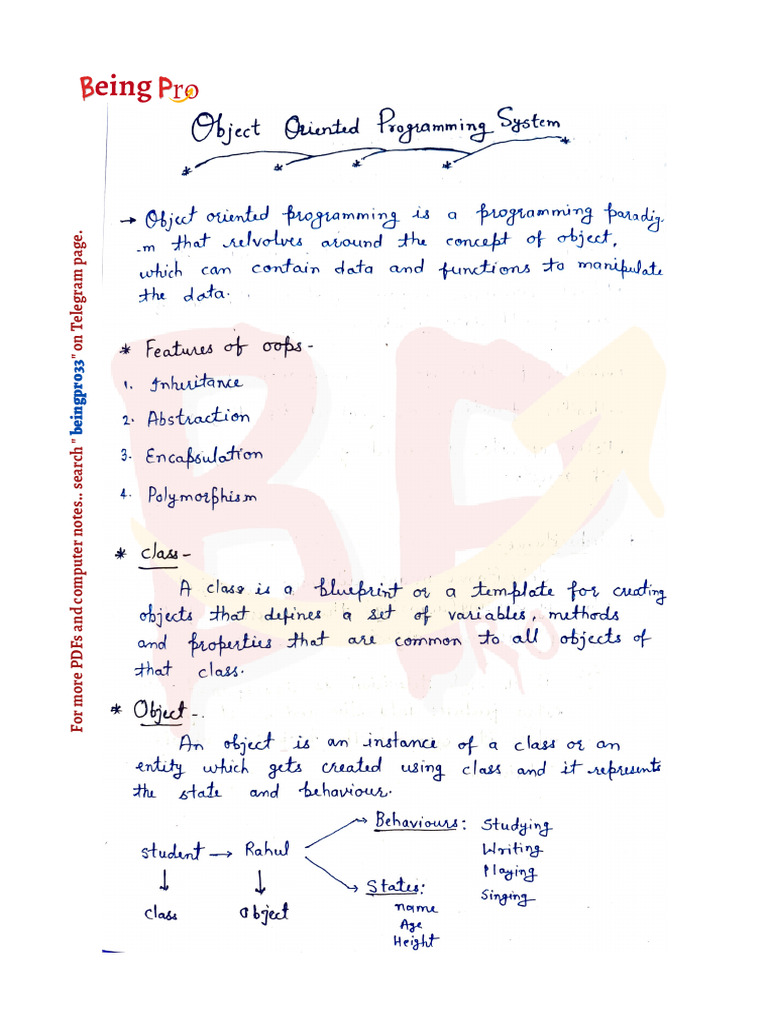 Being Pro
Object Oriented Programming System
→ Object oriented programming is a programming paradig
-m that relvolves around the concept of object,
which can contain data and functions to manipulate
the data.
* Features of oops -
1. Inheritance
2. Abstraction
3. Encapsulation
4. Polymorphism
* Class -
A class is a blueprint or a template for creating
objects that defines a set of variables, methods
and properties that are common to all objects of
that class.
* Object -
An object is an instance of a class or an
entity which gets created using class and it represents
the state and behaviour.
Behaviours: Studying
Writing
Playing
Singing
student → Rahul
class object
States:
name
Age
Height
For more PDFs and computer notes.. search " beingpro33" on Telegram page.
BP
PRO